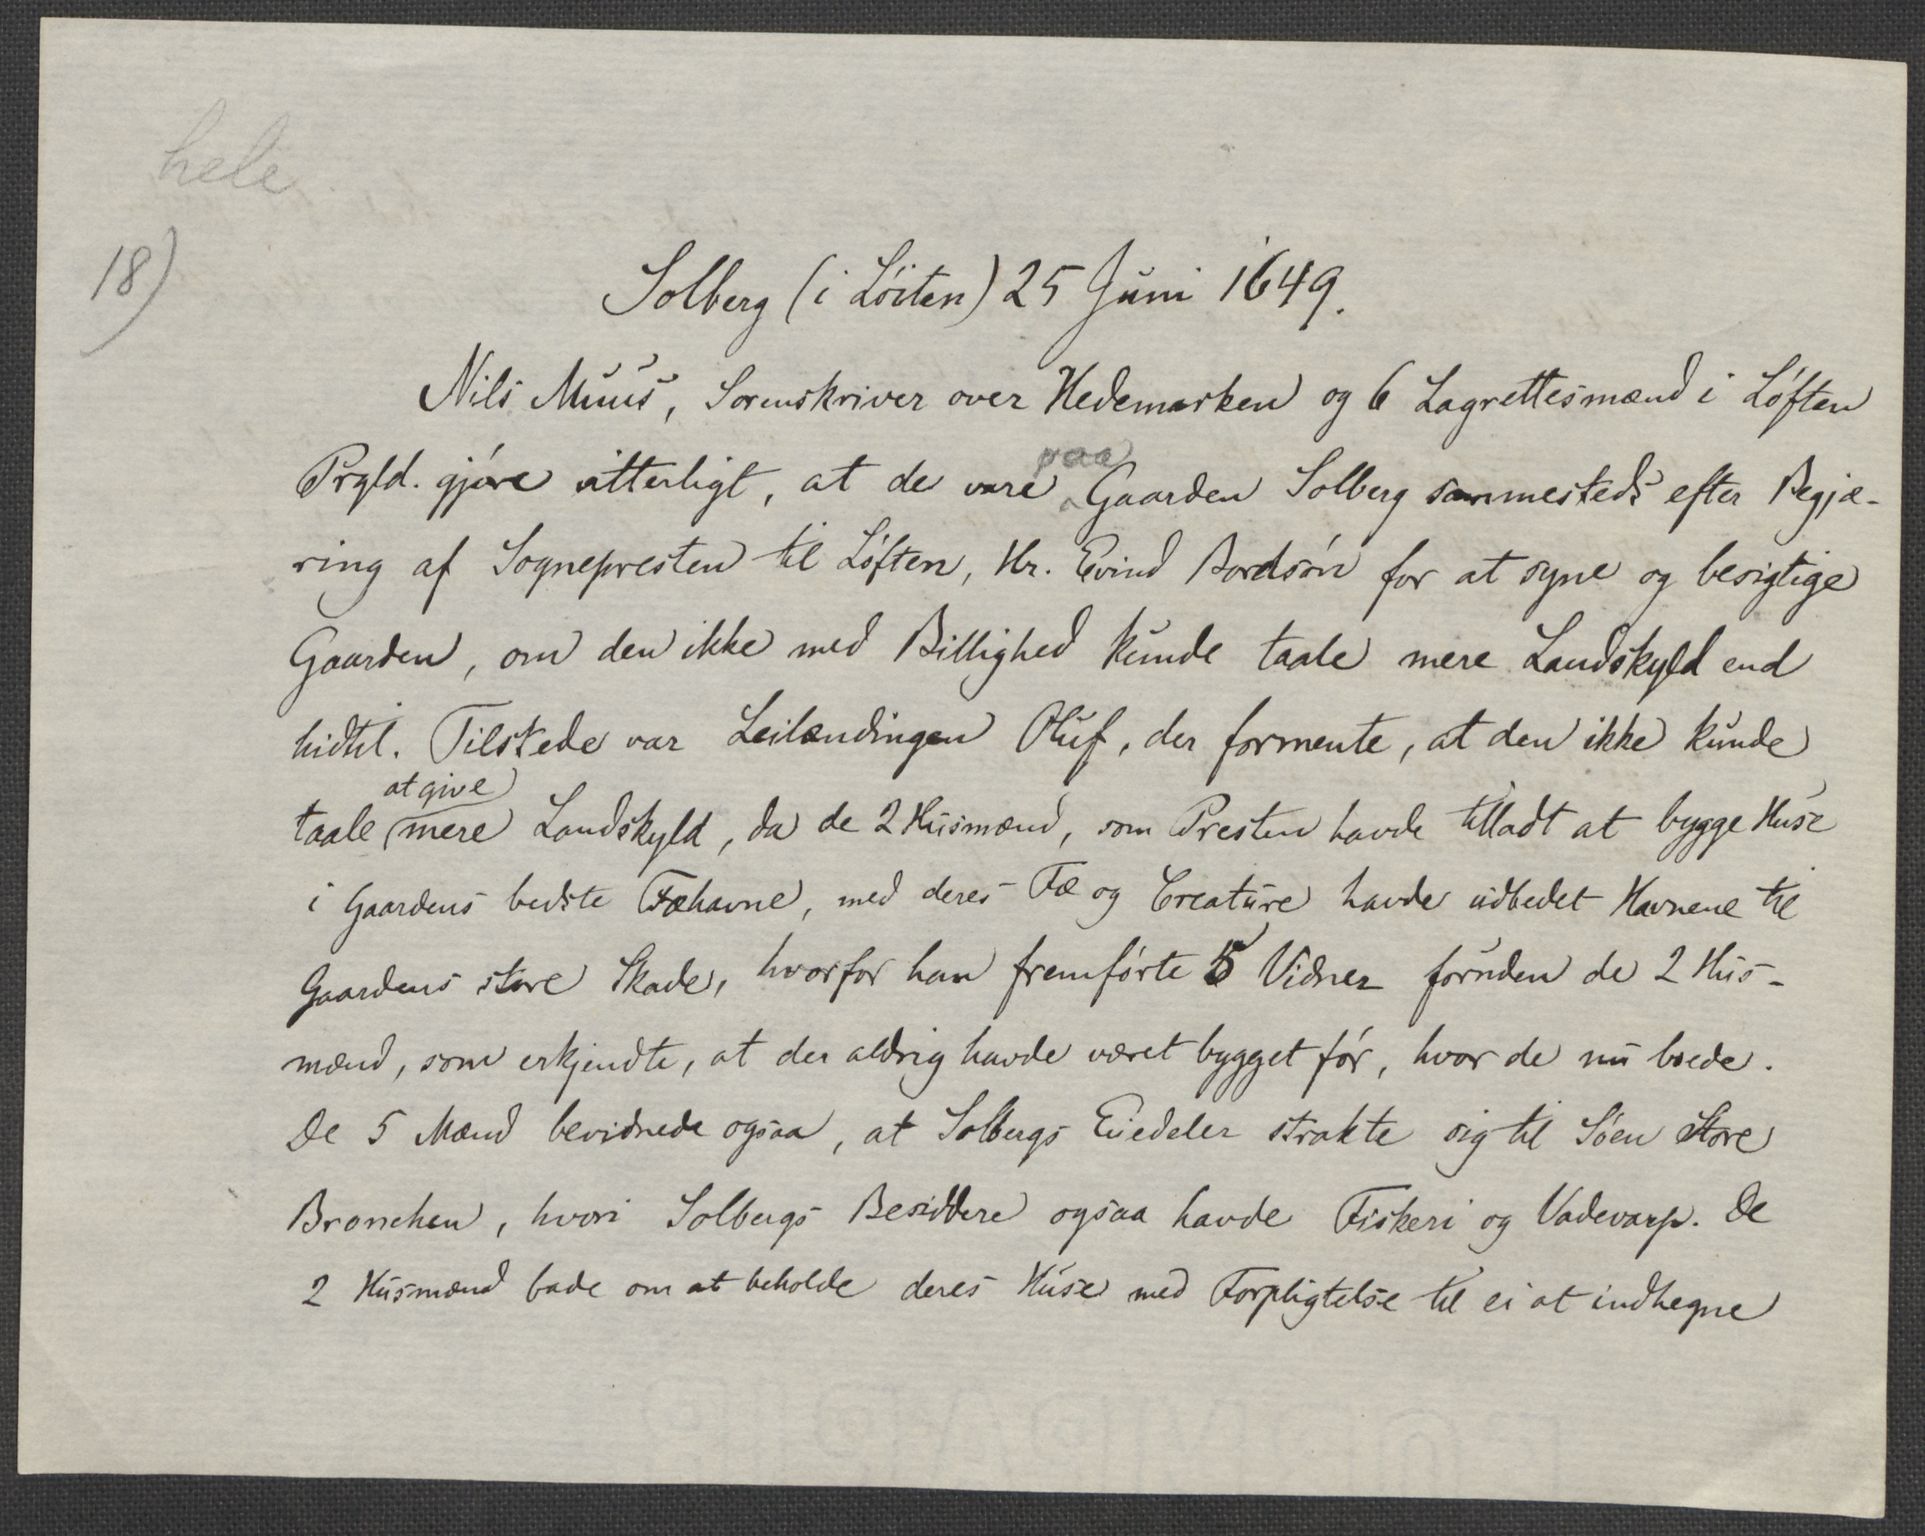 hele
18)
Solberg (i Löiten) 25 Juni 1649.
Nils Muus, Sorenskriver over Hedemarken og 6 Lagrettesmænd i Løften
Prgld. gjøre vitterligt, at de vare paa Gaarden Solberg sammesteds efter Begjæ-
ring af Sognepresten til Løften, Hr. Eivind Bordsøn for at syne og besigtige
Gaarden, om den ikke med Billighed kunde taale mere Landskyld end
hidtil. Tilstede var Leilændingen Oluf, der formente, at den ikke kunde
taale at give mere Landskyld, da de 2 Husmænd, som Presten havde tilladt at bygge Huse
i Gaardens bedste Fæhavne, med deres Fæ og Creature havde udbedet Havnene til
Gaardens store Skade, hvorfor han fremførte 5 Vidner foruden de 2 Hus-
mænd, som erkjendte, at der aldrig havde været bygget før, hvor de nu boede.
De 5 Mænd bevidnede ogsaa, at Solbergs Eiedeler strakte sig til Søen Store
Bronchen, hvori Solbergs Besiddere ogsaa havde Fiskeri og Vadevarp. De
2 Husmænd bade om at beholde deres Huse med Forpligtelse til ei at indhegne